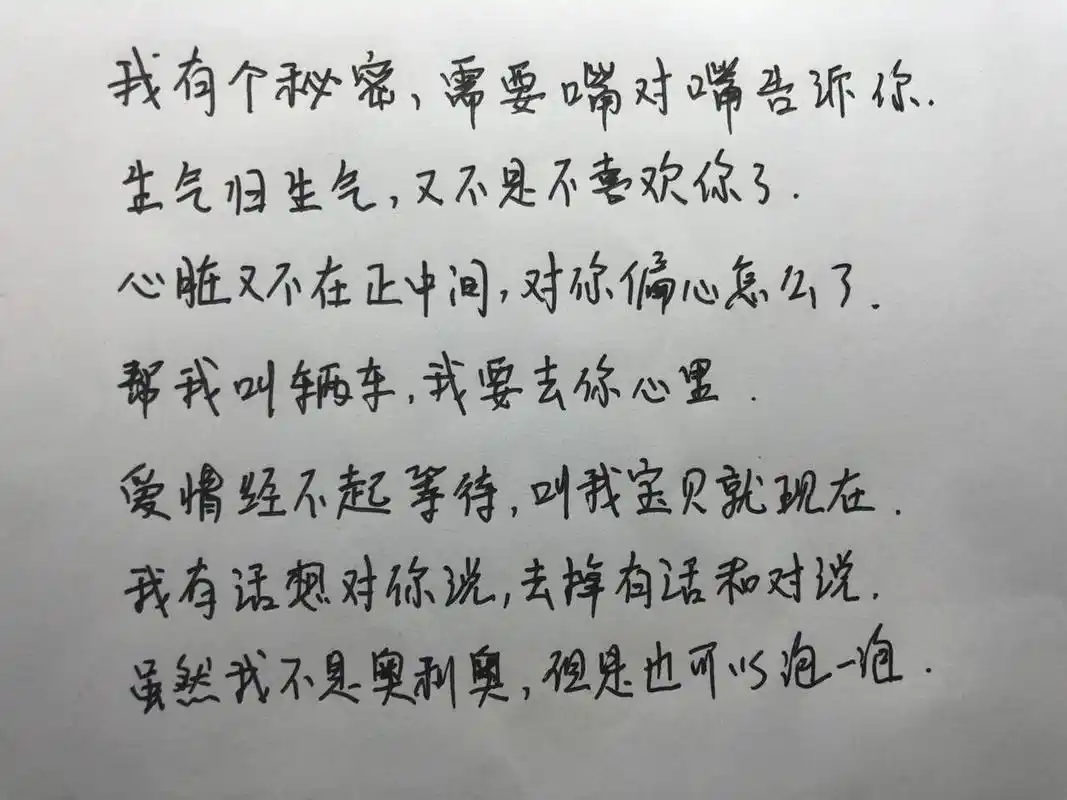 我有个秘密,需要嘴对嘴告诉你.
生气归生气,又不是不喜欢你了.
心脏又不在正中间,对你偏心怎么了.
帮我叫辆车,我要去你心里.
爱情经不起等待,叫我宝贝就现在.
我有话想对你说,去掉有话和对说.
虽然我不是奥利奥,但是也可以泡一泡.